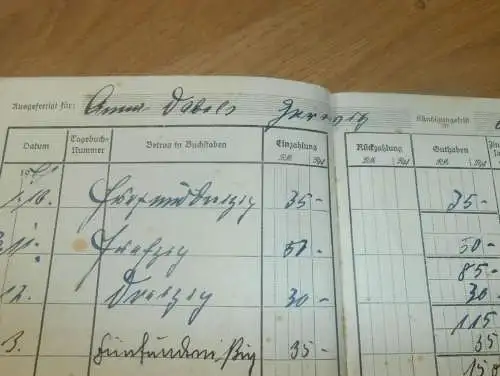 Ausgefertigt für: Anna Dabels Kündigungsfrist
Datum Tagebuch-Nummer Betrag in Buchstaben Einzahlung RM Rpf Rückzahlung RM Rpf Guthaben RM Rpf
1.10. Fünfunddreißig 35- 35-
11. Fünfzig 50- 50-
85-
12. Dreißig 30- 30-
115
3. Fünfunddreißig 35- 35